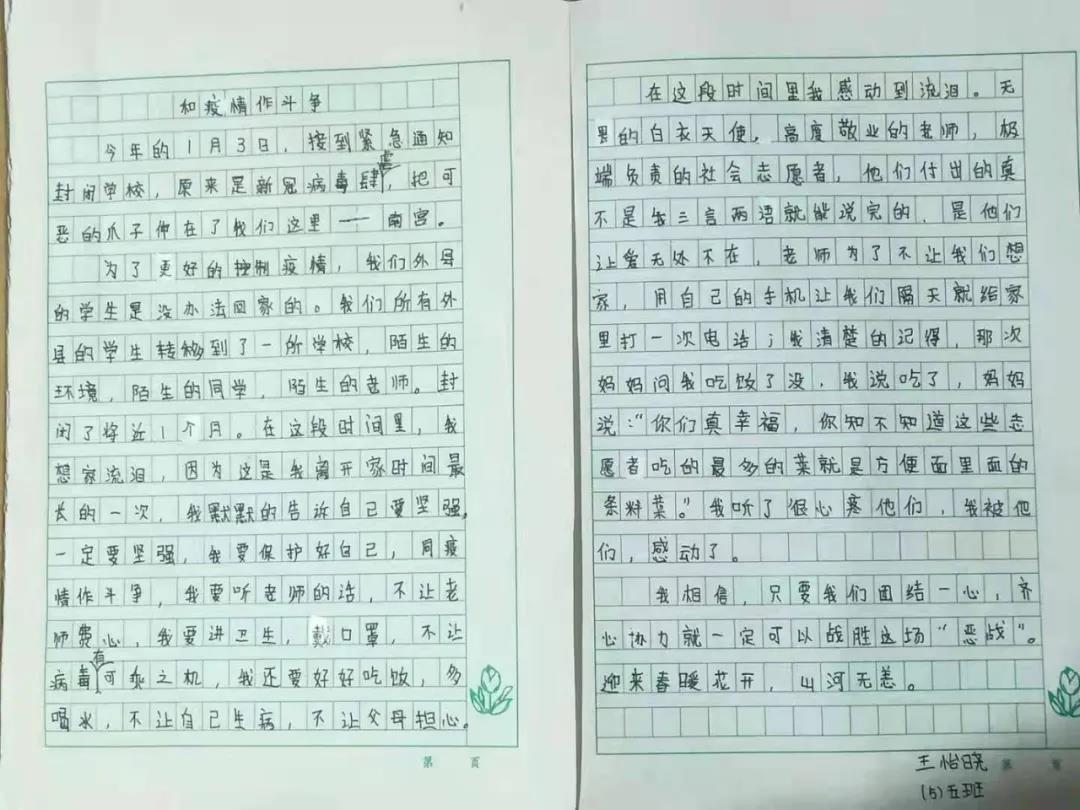 和疫情作斗争
今年的1月3日，接到紧急通知
封闭学校，原来是新冠病毒肆虐，把可
恶的爪子伸在了我们这里——南宫。
为了更好的控制疫情，我们外县
的学生是没办法回家的。我们所有外
县的学生转移到了一所学校，陌生的
环境，陌生的同学，陌生的老师。封
闭了将近1个月。在这段时间里，我
想家流泪，因为这是我离开家时间最
长的一次，我默默的告诉自己要坚强，
一定要坚强，我要保护好自己，同疫
情作斗争，我要听老师的话，不让老
师费心，我要讲卫生，戴口罩，不让
病毒有可乘之机，我还要好好吃饭，多
喝水，不让自己生病，不让父母担心。
第 页
在这段时间里我感动到流泪。无
畏的白衣天使，高度敬业的老师，极
端负责的社会志愿者，他们付出的真
不是我三言两语就能说完的，是他们
让爱无处不在，老师为了不让我们想
家，用自己的手机让我们隔天就给家
里打一次电话；我清楚的记得，那次
妈妈问我吃饭了没，我说吃了，妈妈
说：“你们真幸福，你知不知道这些志
愿者吃的最多的菜就是方便面里面的
条料菜。”我听了很心寒他们，我被他
们，感动了。
我相信，只要我们团结一心，齐
心协力就一定可以战胜这场“恶战”。
迎来春暖花开，山河无恙。
王怡晓 第 页
(5)五班